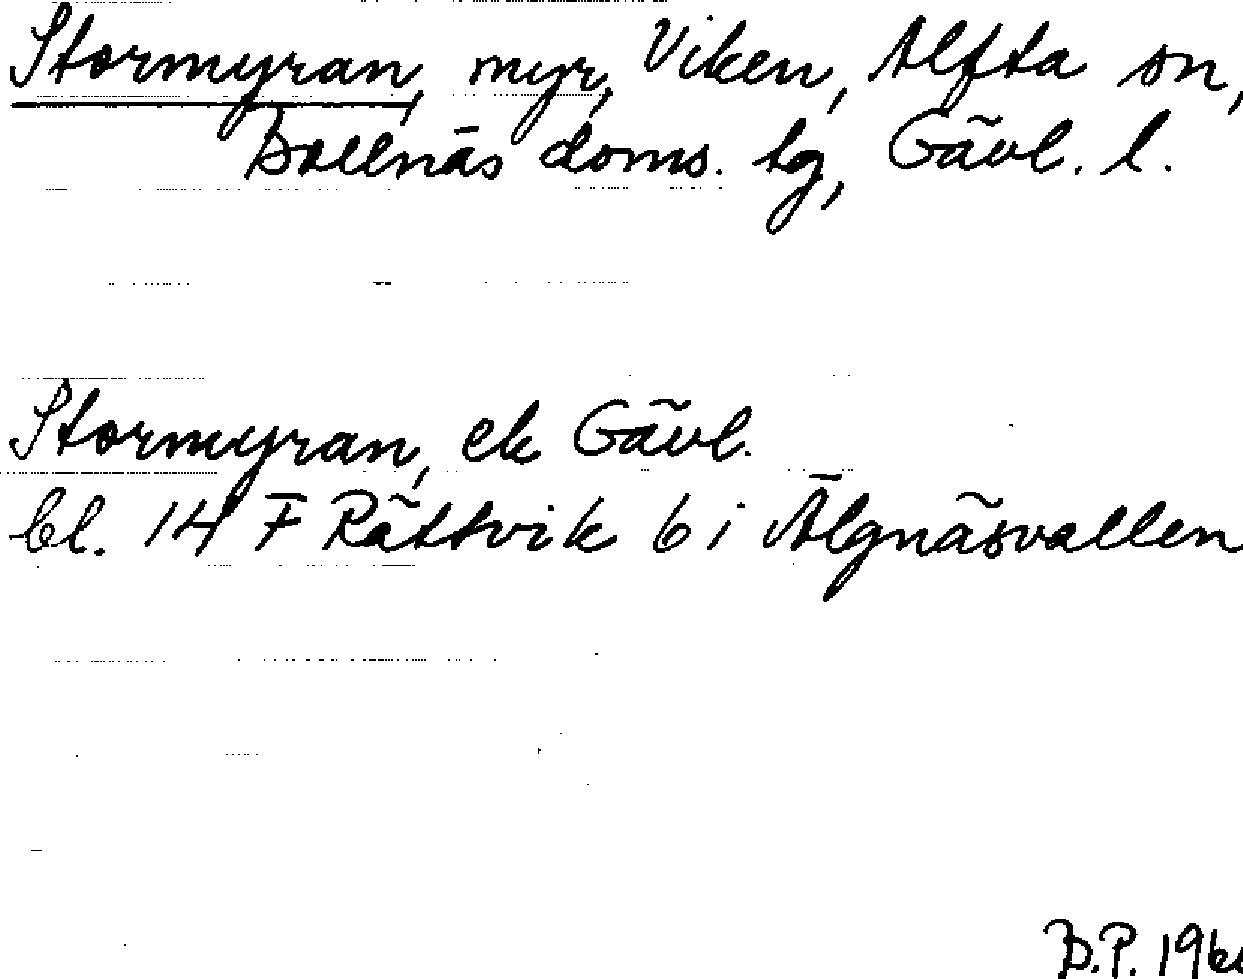 Stormyran, myr, Viken, Alfta sn,
Bollnäs doms. tg, Gävl. l.
Stormyran, ek Gävl.
bl. 14 F Rättvik 6 i Älgnäsvallen
B.P. 196